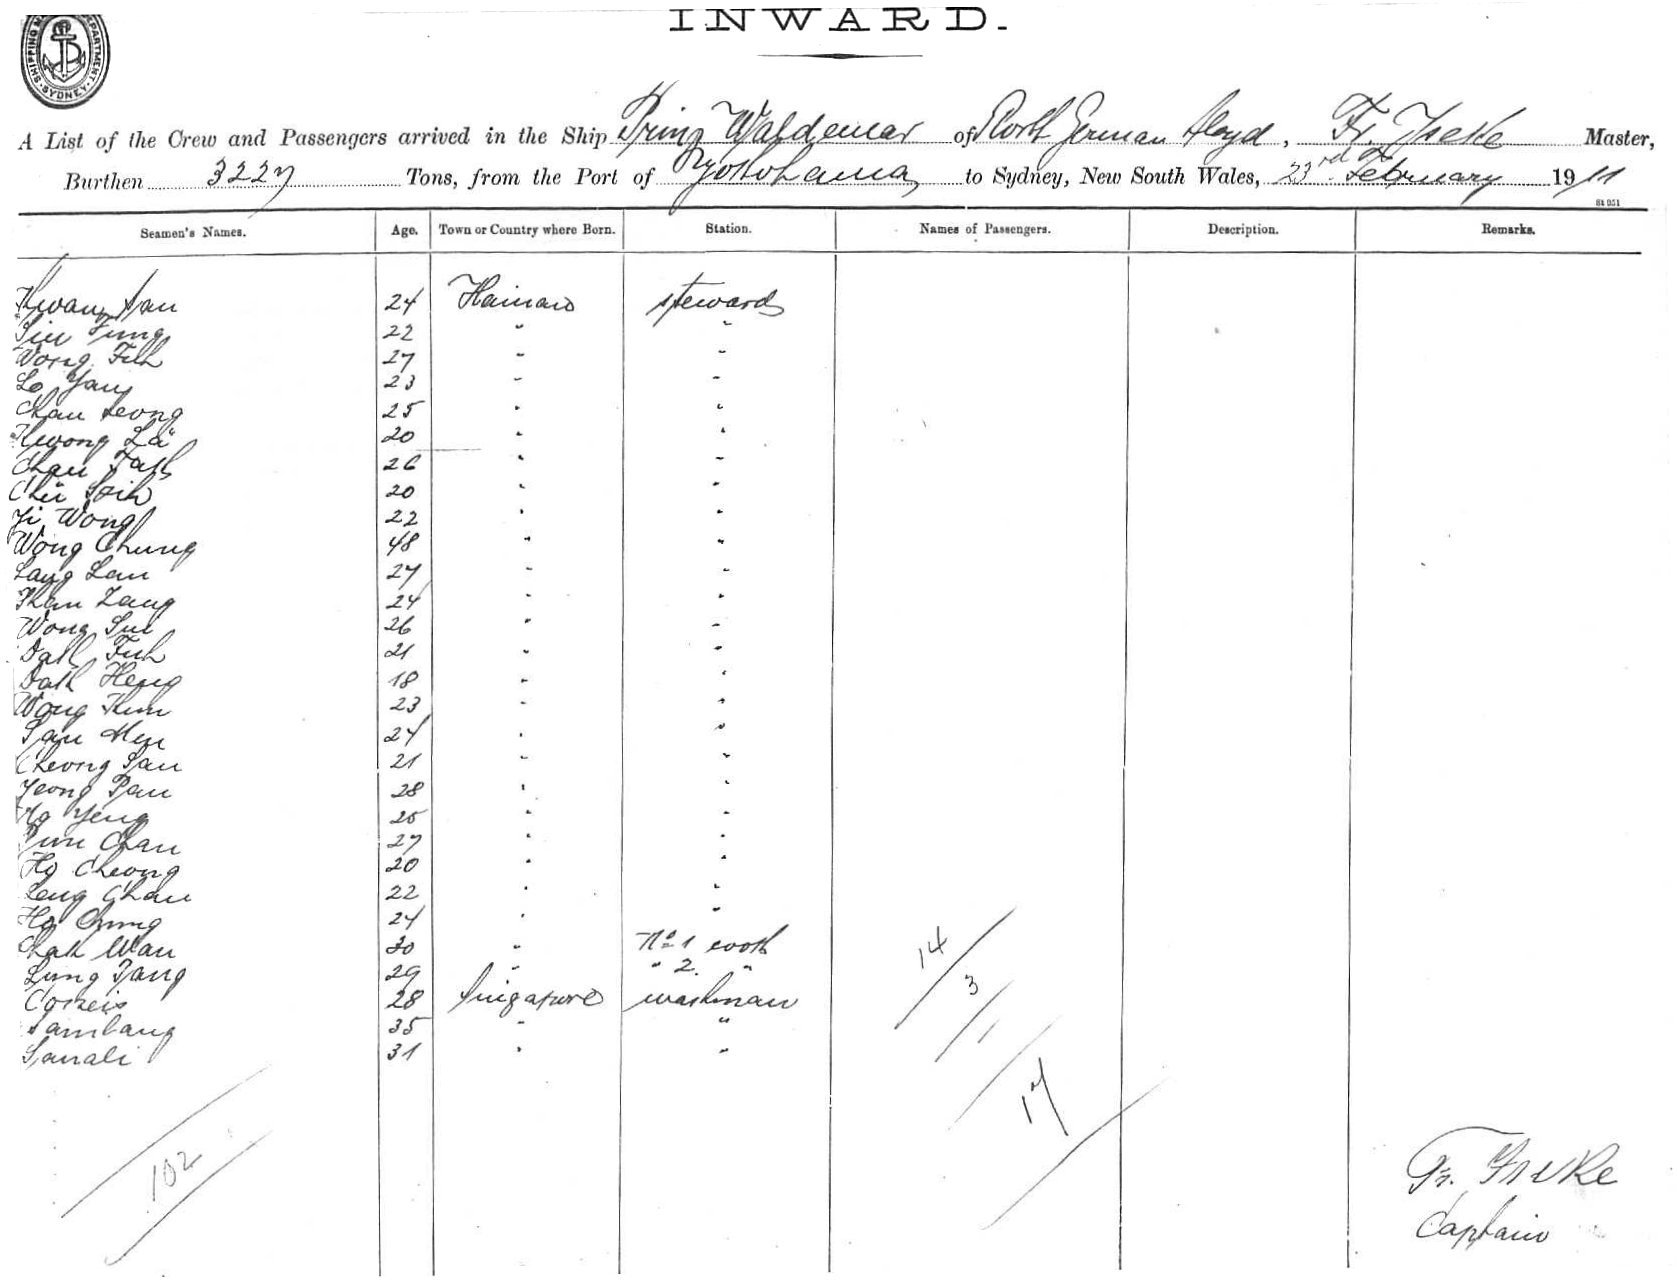 INWARD.
SHIPPING DEPARTMENT SYDNEY
A List of the Crew and Passengers arrived in the Ship Prinz Waldemar of North German Lloyd, Fr. Master,
Burthen 3227 Tons, from the Port of Yokohama to Sydney, New South Wales, 23rd February 1911
Seamen's Names. Age. Town or Country where Born. Station. Names of Passengers. Description. Remarks.
24 Hainan steward
22 " "
Wong Fuh 27 " "
Lo Yau 23 " "
Chau Leong 25 " "
Kwong Lä 20 " "
Chau 26 " "
20 " "
Yi Wong 22 " "
Wong Chung 48 " "
Lang Lau 27 " "
24 " "
Wong Sui 26 " "
Dah Fuh 21 " "
Dah Heng 18 " "
Wong Kum 23 " "
24 " "
Cheong San 21 " "
Yeong Pau 28 " "
Ho Yeng 25 " "
Pun Chau 27 " "
Ho Cheong 20 " "
Leng Chau 22 " "
Ho Chung 24 " "
Chak Wan 30 " No 1 cook
Lung Pang 29 " " 2. "
28 Singapore washman
Sambang 35 " "
Sanali 31 " "
14
3
1
17
102
Fr.
Captain